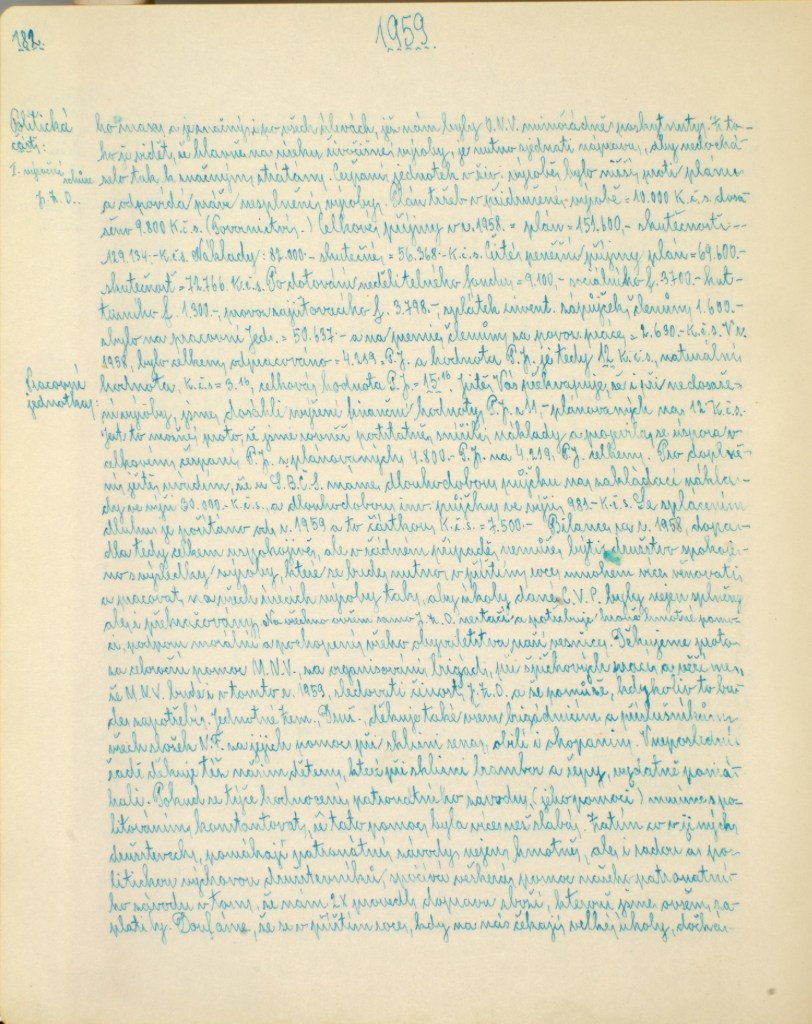 182.
1959.
Politická
část:
I. výroční schůze
J.Z.D..
Pracovní
jednotka:
ho masa a je značný i po všech úlevách, jež nám byly O.N.V. mimořádně poskytnuty. Z to-
ho je vidět, že hlavně na úseku živočišné výroby, je nutno sjednati nápravu, aby nedochá-
zelo tak k značným ztrátám. Čerpání jednotek v živ. výrobě bylo nižší proti plánu
a odpovídá práve nesplnění výroby. Plán tržeb v přidružené výrobě = 10.000 K.č.s. dosa-
ženo 9.800 K.č.s. (Povoznictví.) Celkové příjmy v r. 1958. = plán = 151.600,- skutečnost --
129.134.- K.č.s. Náklady: 82.000.- skutečné = 56.368.- K.č.s. Čisté peněžní příjmy plán = 69.600.-
skutečnost = 72.766 K.č.s. Po dotování nedělitelného fondu = 9.100,- sociálního f. 3700.- kul-
turního f. 1.300.-, provoz. zajišťovacího f. 3.798.-, splátek invent. zápůjček členům 1.600.-
zbylo na pracovní jedn. = 50.637.- a na premie členům za povoz. práce = 2.630.- K.č.s. V r.
1958, bylo celkem odpracováno = 4.219. P.J. a hodnota P.J. je tedy 12 K.č.s., naturální
hodnota K.č.s = 3.16, celková hodnota P.J. = 15.16. Jistě Vás překvapuje, že i při nedosaže-
ní výroby, jsme dosáhli zvýšení finanční hodnoty P.J. z 11,- plánovaných na 12 K.č.s.
Jest to možné proto, že jsme rovněž podstatně snížili náklady a projevila se úspora v
celkovém čerpání P.J. z plánovaných 4.800.- P.J. na 4.219. P.J. celkem. Pro doplně-
ní ještě uvedem, že u S.B.Č.S. máme dlouhodobou půjčku na zakládací nákla-
dy ve výši 30.000.- K.č.s., a dlouhodobou inv. půjčku ve výši 981.- K.č.s. Se splácením
dluhu je počítáno od r. 1959 a to částkou K.č.s. = 7.500.- Bilance za r. 1958, dopa-
dla tedy celkem uspokojivě, ale v žádném případě nemůže býti družstvo spokoje-
no s výsledky výroby, které se bude nutno v příštím roce mnohem více věnovati
a pracovat na všech úsecích výroby tak, aby úkoly dané C.V.P. byly nejen splněny
ale i překračovány. Na všechno ovšem samo J.Z.D. nestačí a potřebuje hodně hmotné pomo-
ci, podporu morální a pochopení všeho obyvatelstva naší vesnice. Děkujeme proto
za celoroční pomoc M.N.V. za organisování brigád, při špičkových pracích a věříme,
že M.N.V. bude i v tomto r. 1959, sledovati činost J.Z.D. a že pomůže, kdykoliv to bu-
de zapotřebí. Jednotné zem. Druž. děkuje také všem brigádníkům a příslušníkům
všech složek N.F. za jejich pomoc při sklizni sena, obilí i okopanin. V neposlední
řadě děkuje též našim dětem, které při sklizni brambor a řepy, vydatně pomá-
hali. Pokud se týče hodnocení patronátního závodu, (jeho pomoci) musíme s po-
litováním konstantovat, že tato pomoc byla více než slabá. Zatím co v jiných
družstvech, pomáhají patronátní závody nejen hmotně, ale i radou a po-
litickou výchovou družstevníků, spočívá veškerá pomoc našeho patronátní-
ho závodu v tom, že nám 2x provedli dopravu zboží, kterou jsme ovšem za-
platily. Doufáme, že se v příštím roce, kdy na nás čekají velké úkoly, dočká-